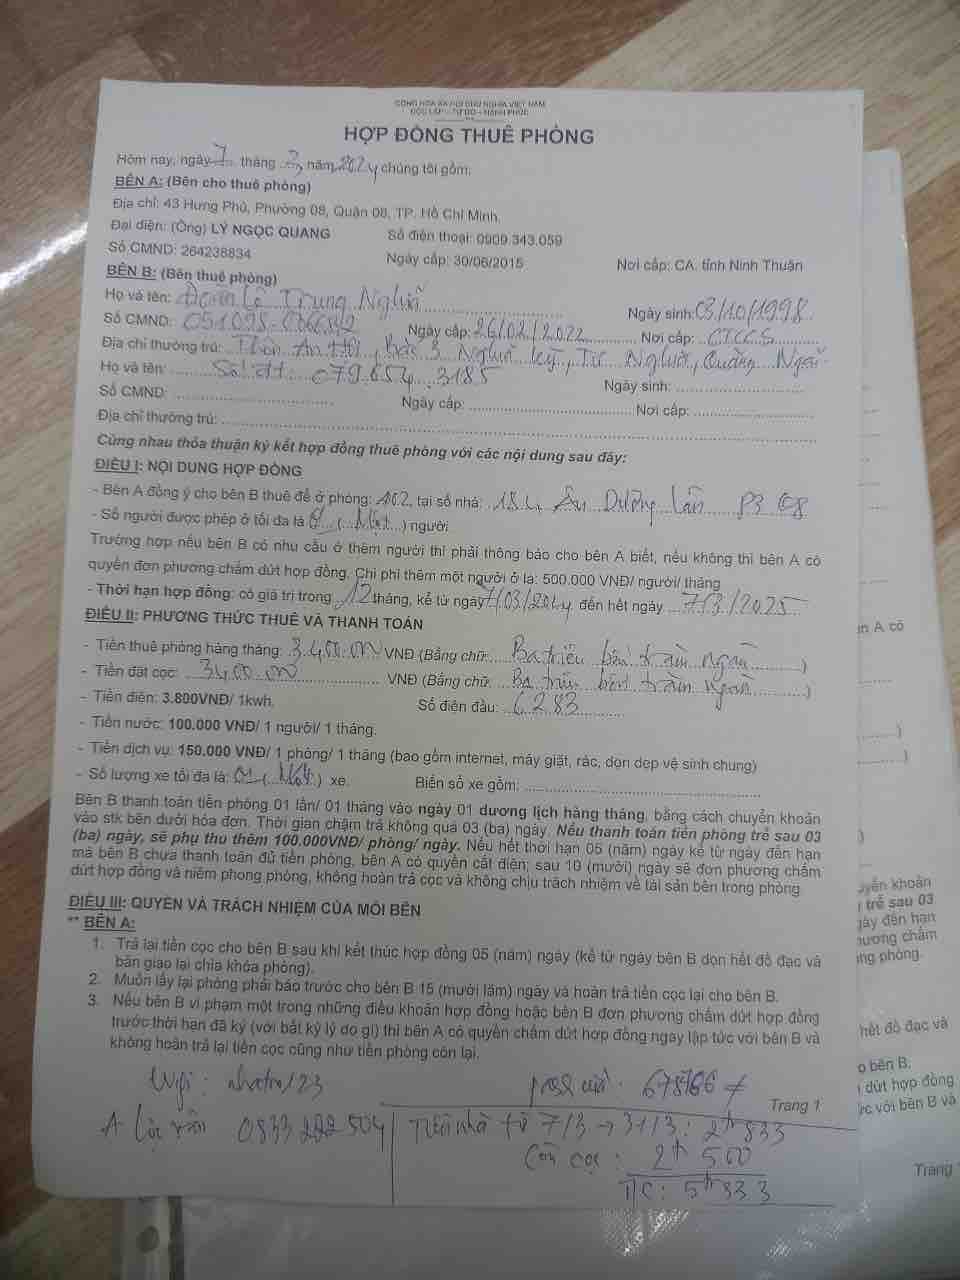 CỘNG HÒA XÃ HỘI CHỦ NGHĨA VIỆT NAM
ĐỘC LẬP - TỰ DO - HẠNH PHÚC
HỢP ĐỒNG THUÊ PHÒNG
Hôm nay, ngày 7 tháng 3 năm 2024 chúng tôi gồm:
BÊN A: (Bên cho thuê phòng)
Địa chỉ: 43 Hưng Phú, Phường 08, Quận 08, TP. Hồ Chí Minh.
Đại diện: (Ông) LÝ NGỌC QUANG Số điện thoại: 0909.343.059
Số CMND: 264238834 Ngày cấp: 30/06/2015 Nơi cấp: CA. tỉnh Ninh Thuận
BÊN B: (Bên thuê phòng)
Họ và tên: Đoàn Lê Trung Nghĩa Ngày sinh: 03/10/1998
Số CMND: Ngày cấp: 26/02/2022 Nơi cấp:
Địa chỉ thường trú: Thôn An Hội Bắc 3, Nghĩa Kỳ, Tư Nghĩa, Quảng Ngãi
Họ và tên: Số đt 079.654.3185 Ngày sinh:
Số CMND: Ngày cấp: Nơi cấp:
Địa chỉ thường trú:
Cùng nhau thỏa thuận ký kết hợp đồng thuê phòng với các nội dung sau đây:
ĐIỀU I: NỘI DUNG HỢP ĐỒNG
- Bên A đồng ý cho bên B thuê để ở phòng: 102, tại số nhà: Âu Dương Lân P3 Q8
- Số người được phép ở tối đa là (Một) người
Trường hợp nếu bên B có nhu cầu ở thêm người thì phải thông báo cho bên A biết, nếu không thì bên A có
quyền đơn phương chấm dứt hợp đồng. Chi phí thêm một người ở là: 500.000 VNĐ/ người/ tháng
- Thời hạn hợp đồng: có giá trị trong 12 tháng, kể từ ngày 7/03/2024 đến hết ngày 7/3/2025
ĐIỀU II: PHƯƠNG THỨC THUÊ VÀ THANH TOÁN
- Tiền thuê phòng hàng tháng: 3.400.000 VNĐ (Bằng chữ: Ba triệu bốn trăm ngàn)
- Tiền đặt cọc: 3400.000 VNĐ (Bằng chữ: Ba triệu bốn trăm ngàn)
- Tiền điện: 3.800VNĐ/ 1kwh. Số điện đầu: 6283
- Tiền nước: 100.000 VNĐ/ 1 người/ 1 tháng.
- Tiền dịch vụ: 150.000 VNĐ/ 1 phòng/ 1 tháng (bao gồm internet, máy giặt, rác, dọn dẹp vệ sinh chung)
- Số lượng xe tối đa là: 01 (Một) xe. Biển số xe gồm:
Bên B thanh toán tiền phòng 01 lần/ 01 tháng vào ngày 01 dương lịch hàng tháng, bằng cách chuyển khoản
vào stk bên dưới hóa đơn. Thời gian chậm trả không quá 03 (ba) ngày. Nếu thanh toán tiền phòng trễ sau 03
(ba) ngày, sẽ phụ thu thêm 100.000VNĐ/ phòng/ ngày. Nếu hết thời hạn 05 (năm) ngày kể từ ngày đến hạn
mà bên B chưa thanh toán đủ tiền phòng, bên A có quyền cắt điện; sau 10 (mười) ngày sẽ đơn phương chấm
dứt hợp đồng và niêm phong phòng, không hoàn trả cọc và không chịu trách nhiệm về tài sản bên trong phòng.
ĐIỀU III: QUYỀN VÀ TRÁCH NHIỆM CỦA MỖI BÊN
** BÊN A:
1. Trả lại tiền cọc cho bên B sau khi kết thúc hợp đồng 05 (năm) ngày (kể từ ngày bên B dọn hết đồ đạc và
bàn giao lại chìa khóa phòng).
2. Muốn lấy lại phòng phải báo trước cho bên B 15 (mười lăm) ngày và hoàn trả tiền cọc lại cho bên B.
3. Nếu bên B vi phạm một trong những điều khoản hợp đồng hoặc bên B đơn phương chấm dứt hợp đồng
trước thời hạn đã ký (với bất kỳ lý do gì) thì bên A có quyền chấm dứt hợp đồng ngay lập tức với bên B và
không hoàn trả lại tiền cọc cũng như tiền phòng còn lại.
Wifi: nhatro123 pass cửa:
Trang 1
A Lộc 0833 222 504 Tiền nhà từ 7/3 → 31/3: 2tr 833
Còn cọc: 2tr 500
TC: 5tr 333
n A có
)
)
uyển khoản
trễ sau 03
gày đến hạn
hương chấm
ng phòng.
hết đồ đạc và
o bên B.
dứt hợp đồng
ực với bên B và
Trang